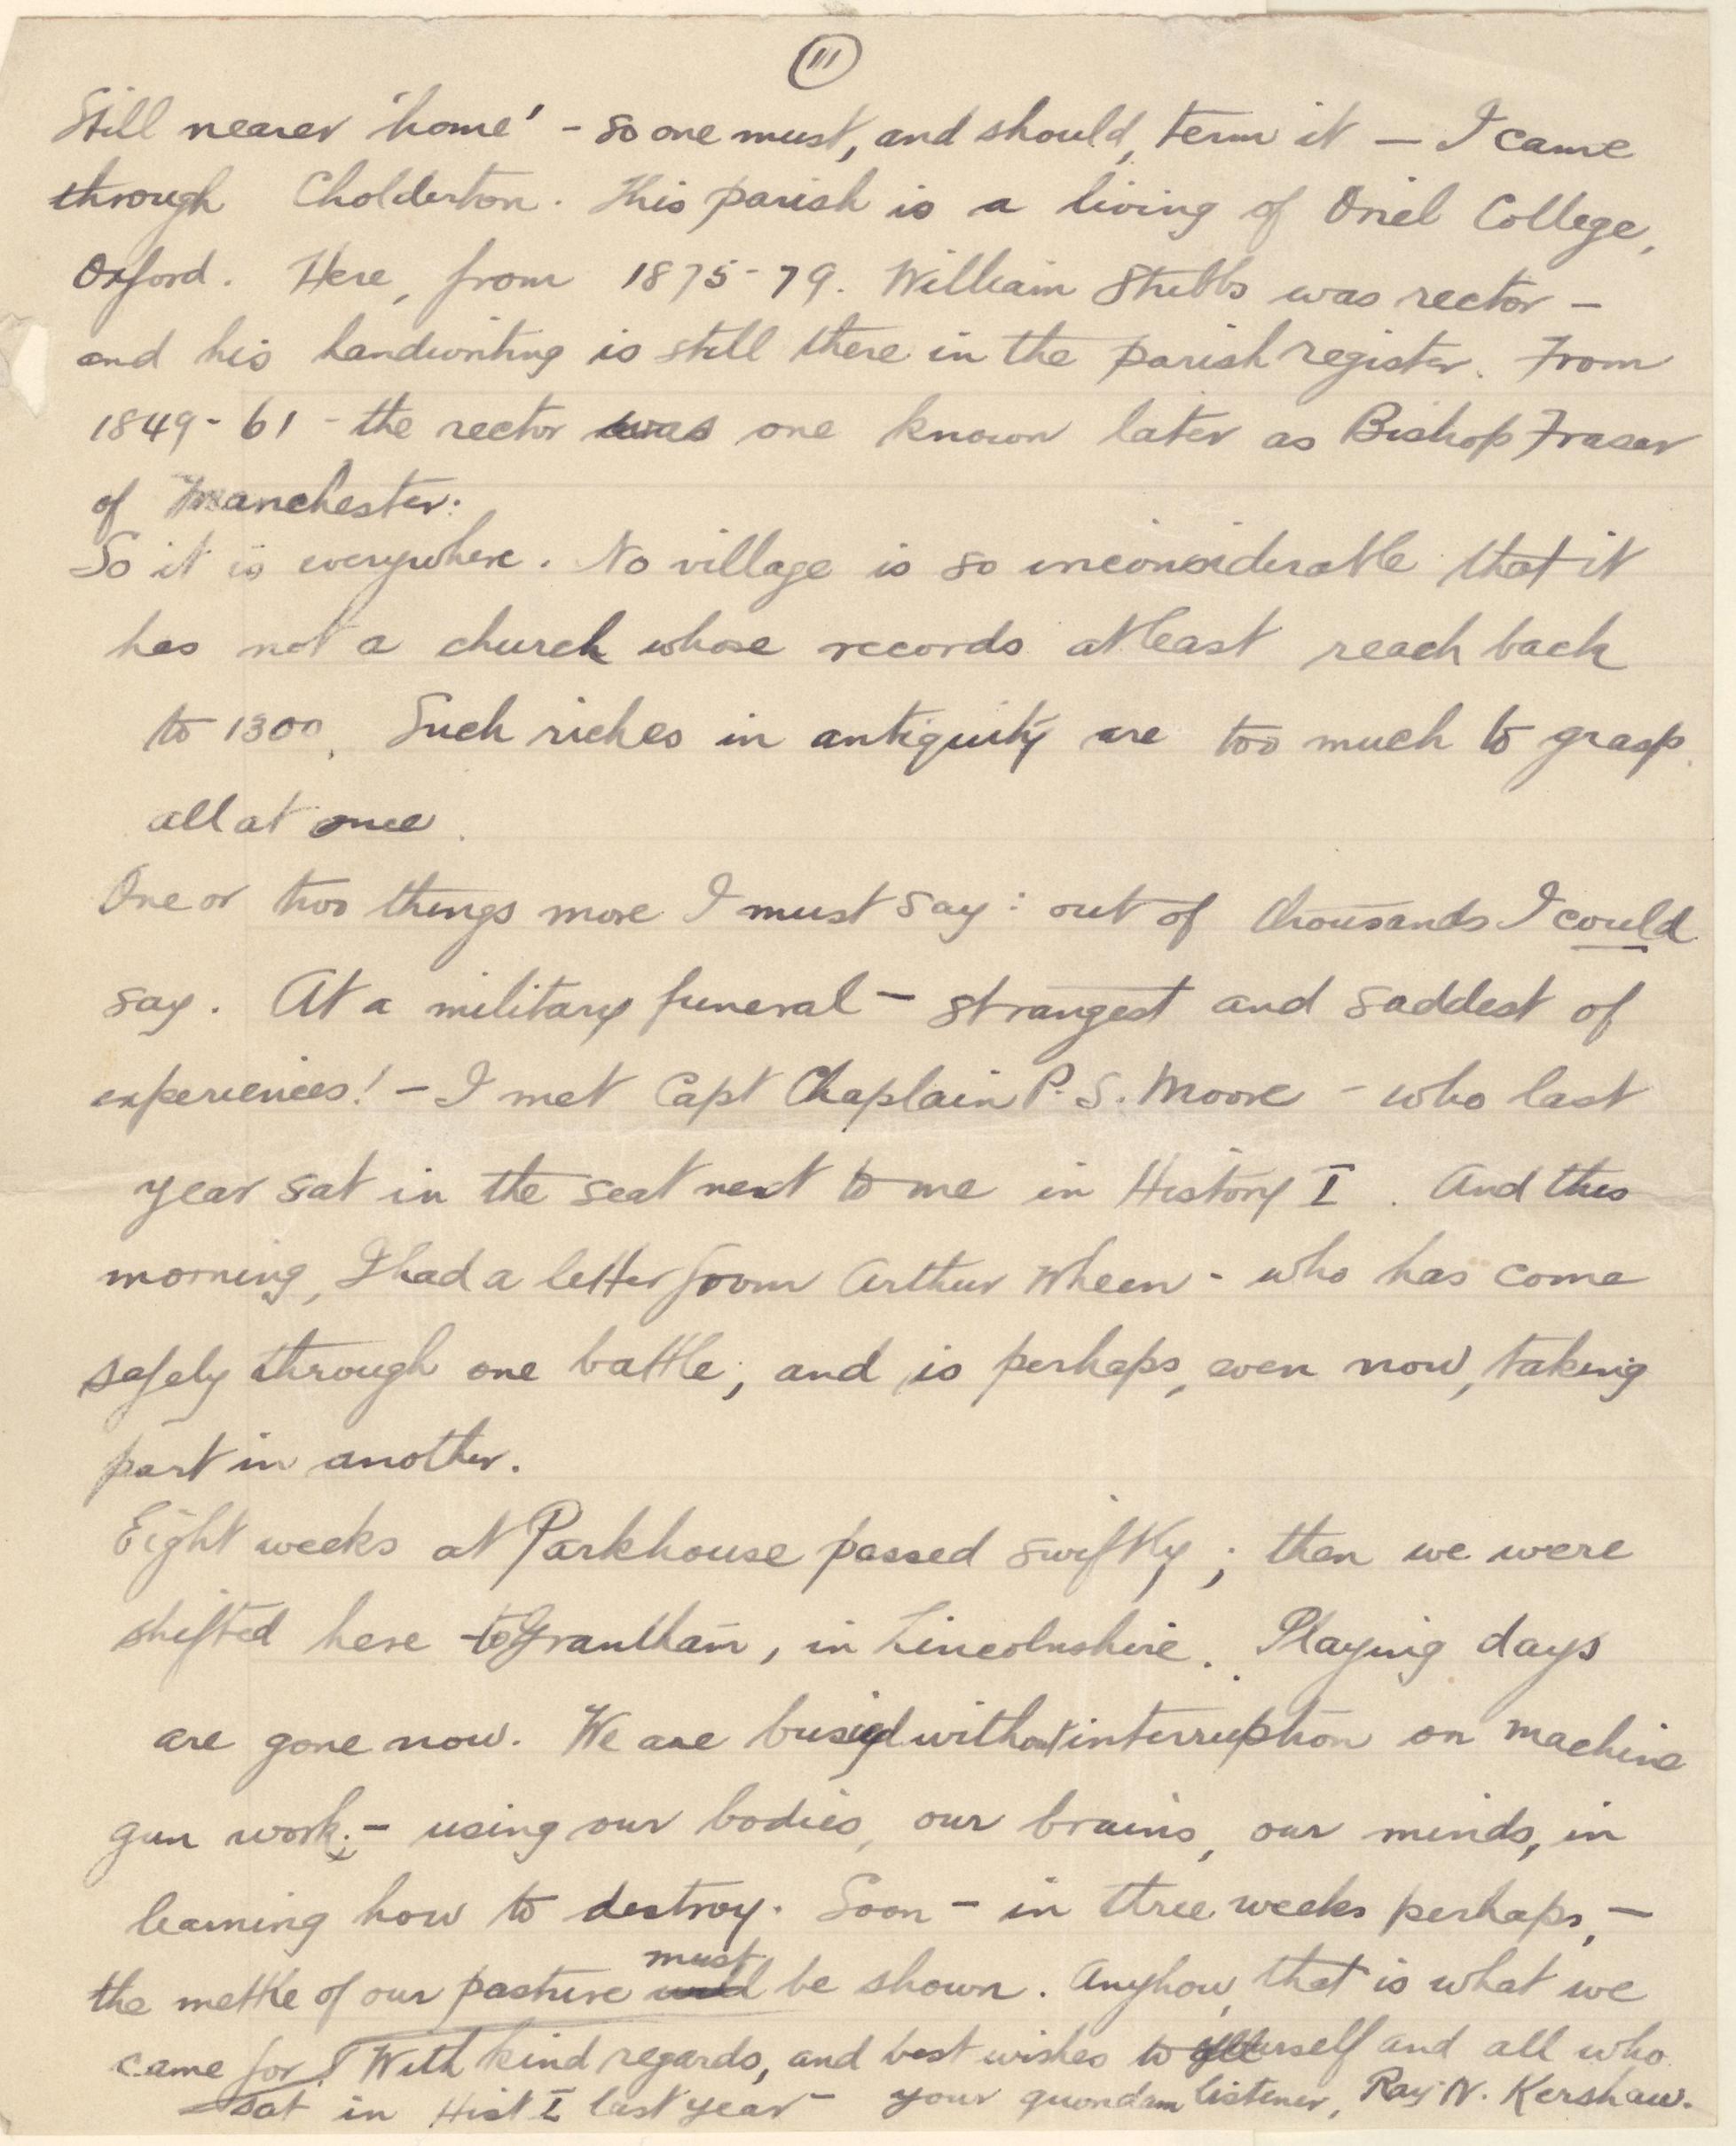 III
Still nearer 'home' - so one must, and should, term it — I came
through Cholderton. This parish is a living of Oriel College,
Oxford. Here, from 1875-79. William Stubbs was rector -
and his handwriting is still there in the parish register. From
1849-61 - the rector was one known later as Bishop Fraser
of Manchester.
So it is everywhere. No village is so inconsiderable that it
has not a church whose records at least reach back
to 1300. Such riches in antiquity are too much to grasp
all at once.
One or two things more I must say: out of thousands I could
say. At a military funeral - strangest and saddest of
experiences! - I met Capt Chaplain P. S. Moore - who last
year sat in the seat next to me in History I. And this
morning, I had a letter from Arthur Wheen - who has come
safely through one battle, and is perhaps, even now, taking
part in another.
Eight weeks at Parkhouse passed swiftly; then we were
shifted here to Grantham, in Lincolnshire. Playing days
are gone now. We are busied without interruption on machine
gun work; - using our bodies, our brains, our minds, in
learning how to destroy. Soon - in three weeks perhaps, -
the mettle of our pasture must be shown. Anyhow, that is what we
came for! With kind regards, and best wishes to yourself and all who
sat in Hist I last year - your quondam listener, Ray N. Kershaw.